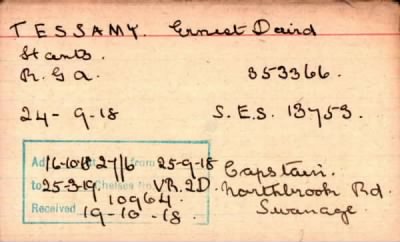 TESSAMY. Ernest David
St Ants.
R.G.A. 353366.
24- 9-18 S.E.S. 13753.
Ad from
16-10-18 27/6 25-9-18
to Chelsea No
25-3-19 VR. 2D.
10964.
Received
19-10-18.
Capstan.
Northbrook Rd.
Swanage.